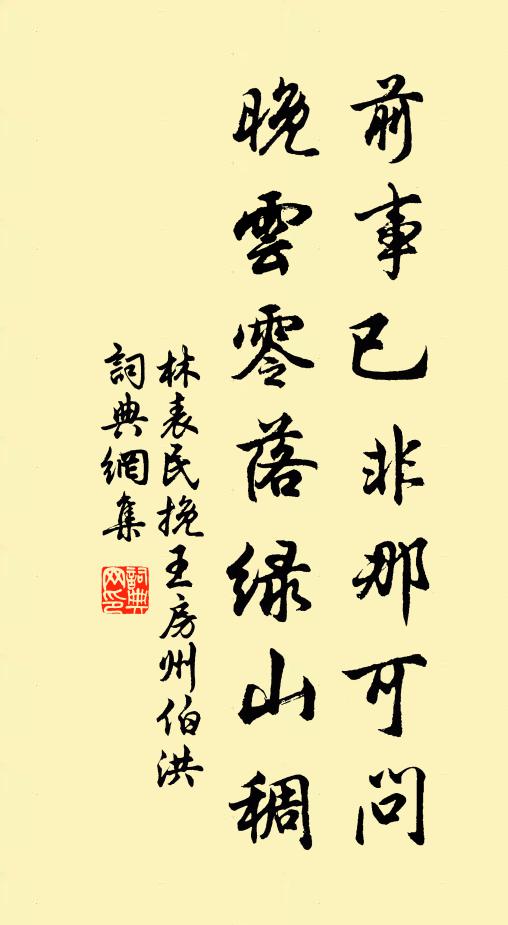 前事已非那可問
晚雲零落緑山稠
林表民挽王房州伯洪
詞典網集
詞典網印